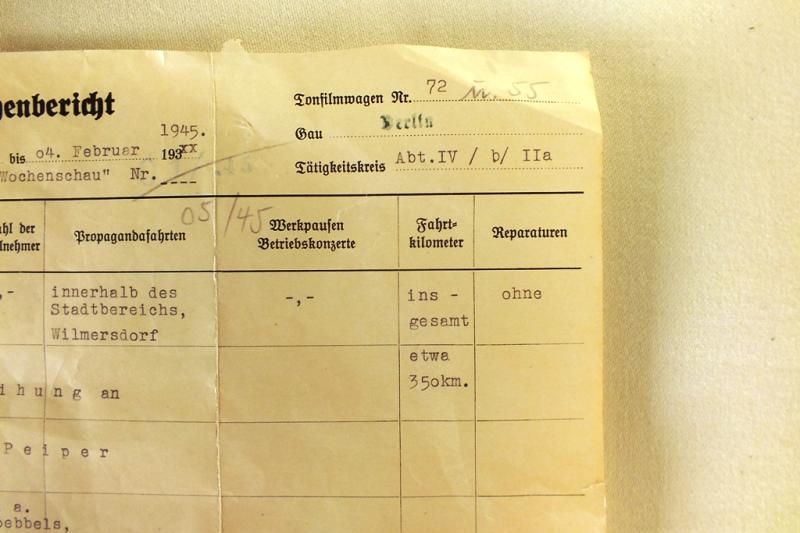 enbericht
Tonfilmwagen Nr. 72 u. 55
Gau Berlin
1945.
bis 04. Februar 193xx
Wochenschau" Nr. ____
05/45
Tätigkeitskreis Abt.IV / b/ IIa
hl der
lnehmer
Propagandafahrten
Werkpausen
Betriebskonzerte
Fahrt-
kilometer
Reparaturen
,-
innerhalb des
Stadtbereichs,
Wilmersdorf
-,-
ins -
gesamt
etwa
350km.
ohne
ihung an
Peiper
a.
oebbels,